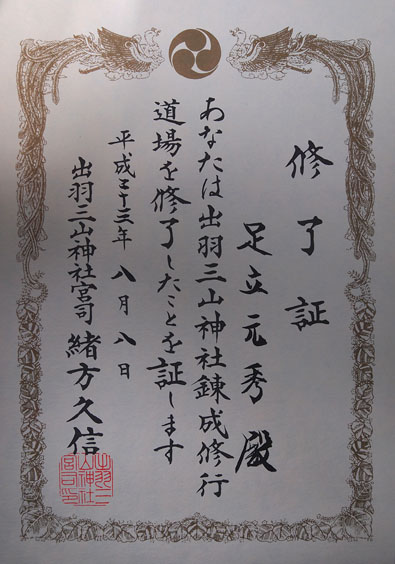 修了証
足立元秀殿
あなたは出羽三山神社錬成修行
道場を修了したことを証します
平成二十三年八月八日
出羽三山神社宮司緒方久信
出羽三
山神社
宮司之印